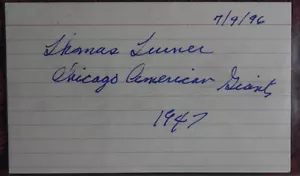 7/9/96
Thomas Turner
Chicago American Giants
1947